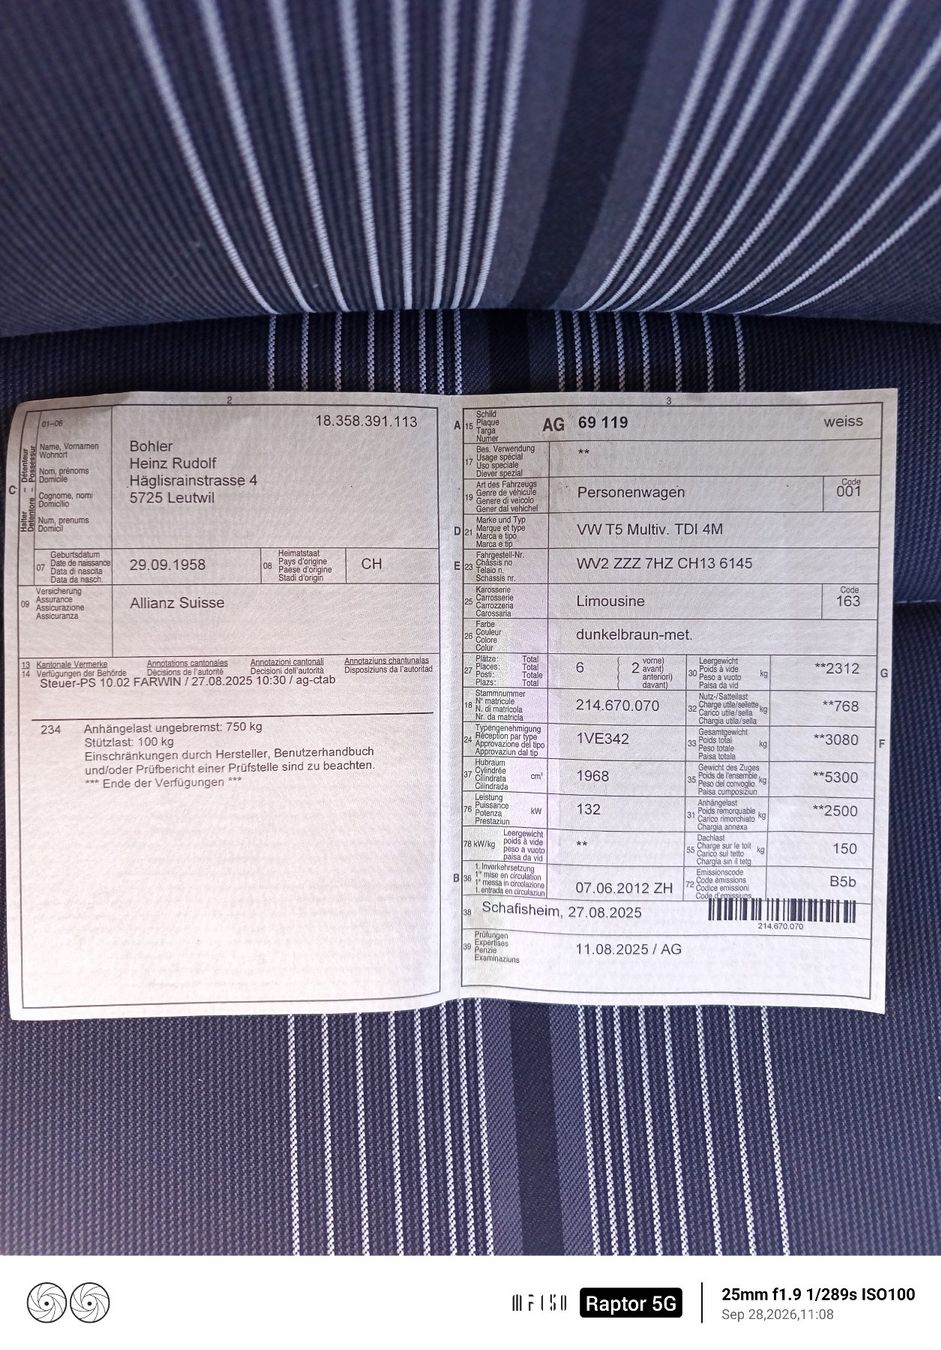 2
01–06
18.358.391.113
C
Halter – Détenteur
Detentore – Possessur
Name, Vornamen
Wohnort
Nom, prénoms
Domicile
Cognome, nomi
Domicilio
Num, prenums
Domicil
Bohler
Heinz Rudolf
Häglisrainstrasse 4
5725 Leutwil
07
Geburtsdatum
Date de naissance
Data di nascita
Data da nasch.
29.09.1958
08
Heimatstaat
Pays d'origine
Paese d'origine
Stadi d'origin
CH
09
Versicherung
Assurance
Assicurazione
Assicuranza
Allianz Suisse
13
14
Kantonale Vermerke
Verfügungen der Behörde
Annotations cantonales
Décisions de l'autorité
Annotazioni cantonali
Decisioni dell'autorità
Annotaziuns chantunalas
Disposiziuns da l'autoritad
Steuer-PS 10.02 FARWIN / 27.08.2025 10:30 / ag-ctab
234 Anhängelast ungebremst: 750 kg
Stützlast: 100 kg
Einschränkungen durch Hersteller, Benutzerhandbuch
und/oder Prüfbericht einer Prüfstelle sind zu beachten.
*** Ende der Verfügungen ***
3
A 15
Schild
Plaque
Targa
Numer
AG 69 119 weiss
17
Bes. Verwendung
Usage spécial
Uso speciale
Diever spezial
**
19
Art des Fahrzeugs
Genre de véhicule
Genere di veicolo
Gener dal vehichel
Personenwagen
Code
001
D 21
Marke und Typ
Marque et type
Marca e tipo
Marca e tip
VW T5 Multiv. TDI 4M
E 23
Fahrgestell-Nr.
Châssis no
Telaio n.
Schassis nr.
WV2 ZZZ 7HZ CH13 6145
25
Karosserie
Carrosserie
Carrozzeria
Carossaria
Limousine
Code
163
26
Farbe
Couleur
Colore
Colur
dunkelbraun-met.
27
Plätze: Total
Places: Total
Posti: Totale
Plazs: Total
6
2
vorne)
avant)
anteriori)
davant)
30
Leergewicht
Poids à vide
Peso a vuoto
Paisa da vid
kg
**2312
G
18
Stammnummer
N° matricule
N. di matricola
Nr. da matricla
214.670.070
32
Nutz-/Sattellast
Charge utile/sellette
Carico utile/sella
Chargia utila/sella
kg
**768
24
Typengenehmigung
Réception par type
Approvazione del tipo
Approvaziun dal tip
1VE342
33
Gesamtgewicht
Poids total
Peso totale
Paisa totala
kg
**3080
F
37
Hubraum
Cylindrée
Cilindrata
Cilindrada
cm³
1968
35
Gewicht des Zuges
Poids de l'ensemble
Peso del convoglio
Paisa cumposiziun
kg
**5300
76
Leistung
Puissance
Potenza
Prestaziun
kW
132
31
Anhängelast
Poids remorquable
Carico rimorchiato
Chargia annexa
kg
**2500
78 kW/kg
Leergewicht
poids à vide
peso a vuoto
paisa da vid
**
55
Dachlast
Charge sur le toit
Carico sul tetto
Chargia sin il tetg
kg
150
B 36
1. Inverkehrsetzung
1re mise en circulation
1a messa in circolazione
1. entrada en circulaziun
07.06.2012 ZH
72
Emissionscode
Code émissions
Codice emissioni
Code d'emissiuns
B5b
38
Schafisheim, 27.08.2025
214.670.070
39
Prüfungen
Expertises
Perizie
Examinaziuns
11.08.2025 / AG
MF150 Raptor 5G
25mm f1.9 1/289s ISO100
Sep 28,2026,11:08